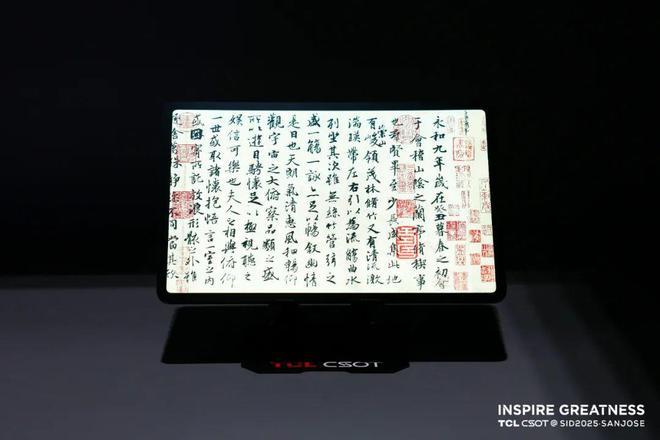 永和九年歲在癸丑暮春之初會
于會稽山陰之蘭亭脩禊事
也羣賢畢至少長咸集此地
有崇山峻領茂林脩竹又有清流激
湍暎帶左右引以為流觴曲水
列坐其次雖無絲竹管弦之
盛一觴一詠亦足以暢敘幽情
是日也天朗氣清惠風和暢仰
觀宇宙之大俯察品類之盛
所以遊目騁懷足以極視聽之
娛信可樂也夫人之相與俯仰
一世或取諸懷抱悟言一室之內
或因寄所託放浪形骸之外雖
舍萬殊靜不同當其欣
TCL CSOT
INSPIRE GREATNESS
TCL CSOT @ SID2025·SANJOSE